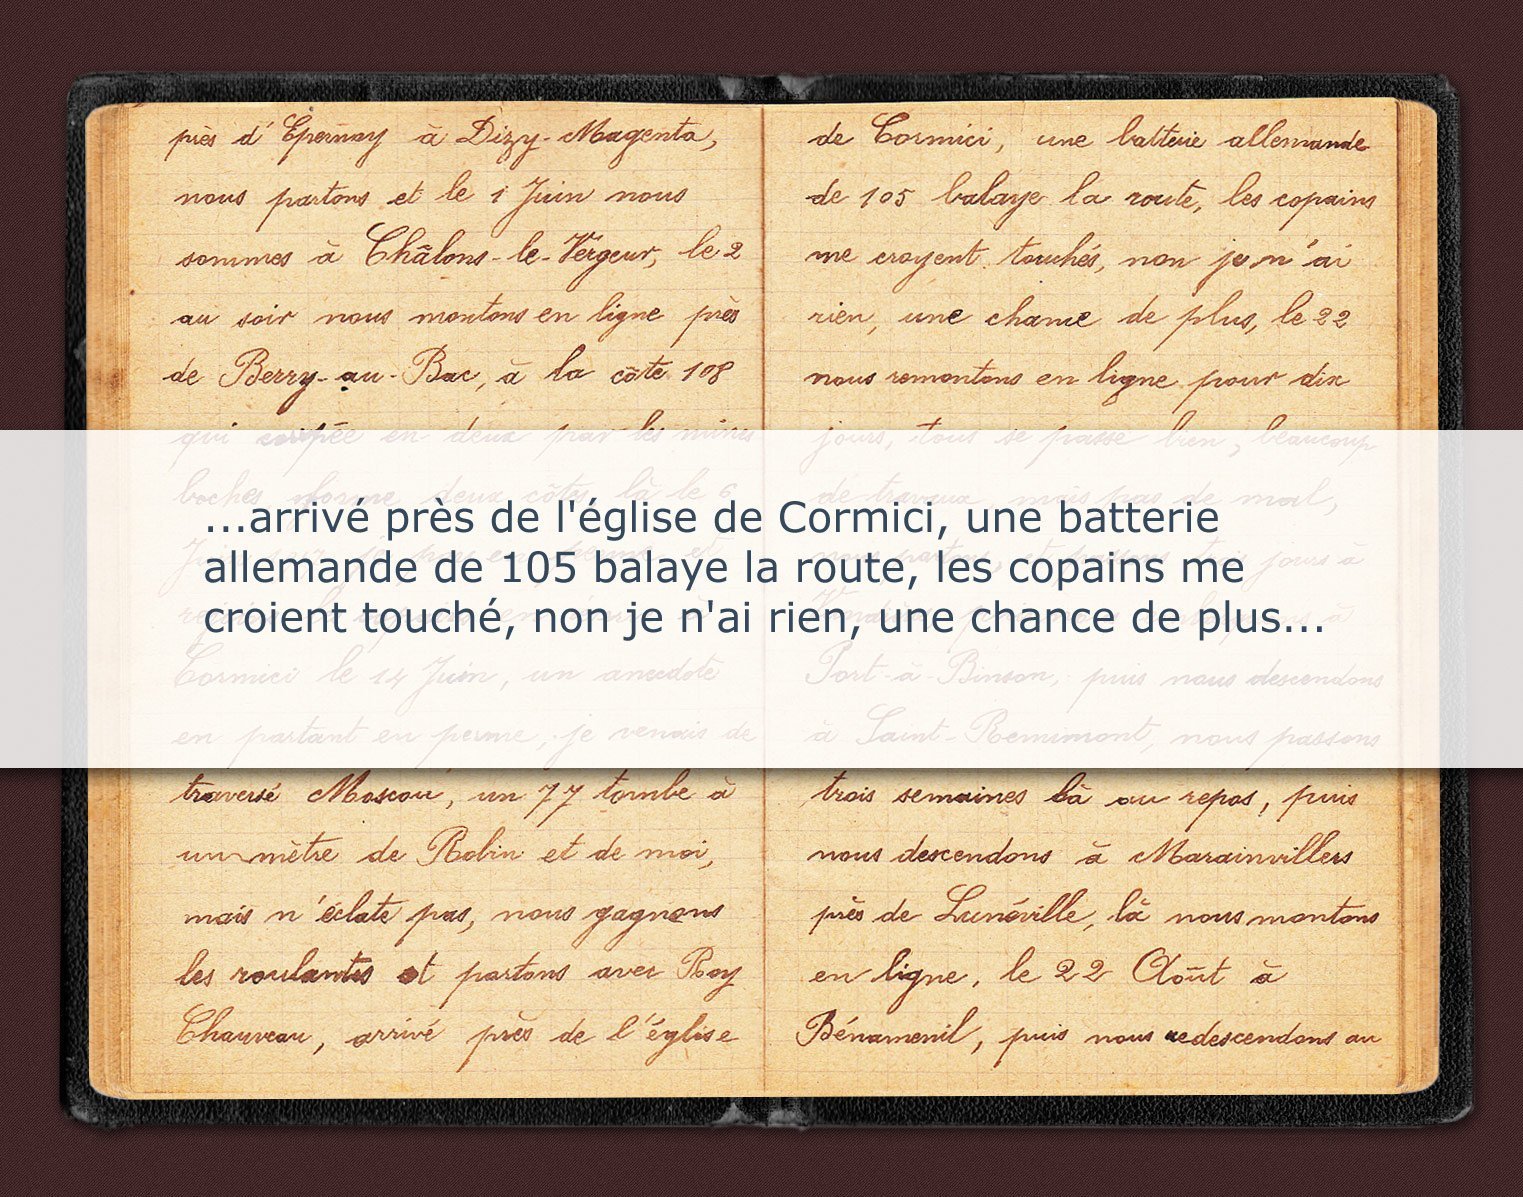 près d'Epernay à Dizy-Magenta,
nous partons et le 1 Juin nous
sommes à Châlons-le-Vergeur, le 2
au soir nous montons en ligne près
de Berry-au-Bac, à la côte 108
qui coupée en deux par les mines
boches forme deux côtes, là le 6
Juin
Cormici le 14 Juin, un anecdote
en partant en perme, je venais de
traversé Moscou, un 77 tombe à
un mètre de Robin et de moi,
mais n'éclate pas, nous gagnons
les roulantes et partons avec Roy
Chauveau, arrivé près de l'église
de Cormici, une batterie allemande
de 105 balaye la route, les copains
me croyent touchés, non je n'ai
rien, une chance de plus, le 22
nous remontons en ligne pour dix
jours, tous se passe bien, beaucoup
de travaux, mais pas de mal,
nous partons, et passons trois jours à
Port-à-Binson, puis nous descendons
à Saint-Remimont, nous passons
trois semaines là au repos, puis
nous descendons à Marainvillers
près de Lunéville, là nous montons
en ligne, le 22 Août à
Bénamenil, puis nous redescendons au
...arrivé près de l'église de Cormici, une batterie
allemande de 105 balaye la route, les copains me
croient touché, non je n'ai rien, une chance de plus...